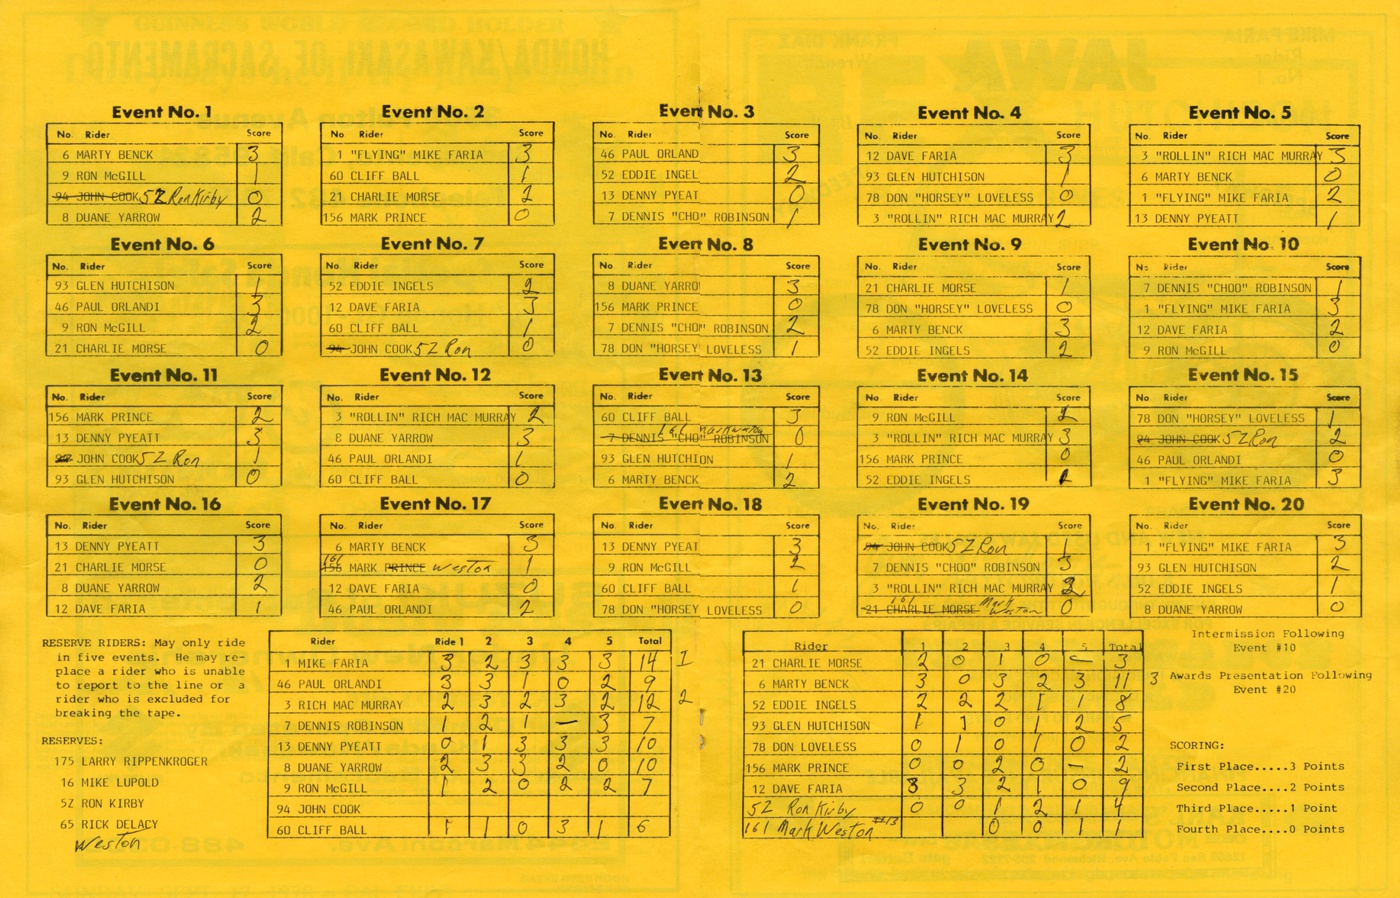 Event No. 1
No. Rider Score
6 MARTY BENCK 3
9 RON McGILL 1
94 JOHN COOK 5Z Ron Kirby 0
8 DUANE YARROW 2
Event No. 2
No. Rider Score
1 "FLYING" MIKE FARIA 3
60 CLIFF BALL 1
21 CHARLIE MORSE 2
156 MARK PRINCE 0
Event No. 3
No. Rider Score
46 PAUL ORLAND 3
52 EDDIE INGEL 2
13 DENNY PYEAT 0
7 DENNIS "CHO" ROBINSON 1
Event No. 4
No. Rider Score
12 DAVE FARIA 3
93 GLEN HUTCHISON 1
78 DON "HORSEY" LOVELESS 0
3 "ROLLIN" RICH MAC MURRAY 2
Event No. 5
No. Rider Score
3 "ROLLIN" RICH MAC MURRAY 3
6 MARTY BENCK 0
1 "FLYING" MIKE FARIA 2
13 DENNY PYEATT 1
Event No. 6
No. Rider Score
93 GLEN HUTCHISON 1
46 PAUL ORLANDI 3
9 RON McGILL 2
21 CHARLIE MORSE 0
Event No. 7
No. Rider Score
52 EDDIE INGELS 2
12 DAVE FARIA 3
60 CLIFF BALL 1
94 JOHN COOK 5Z Ron 0
Event No. 8
No. Rider Score
8 DUANE YARRO 3
156 MARK PRINCE 0
7 DENNIS "CHO" ROBINSON 2
78 DON "HORSEY LOVELESS 1
Event No. 9
No. Rider Score
21 CHARLIE MORSE 1
78 DON "HORSEY" LOVELESS 0
6 MARTY BENCK 3
52 EDDIE INGELS 2
Event No. 10
No. Rider Score
7 DENNIS "CHOO" ROBINSON 1
1 "FLYING" MIKE FARIA 3
12 DAVE FARIA 2
9 RON McGILL 0
Event No. 11
No. Rider Score
156 MARK PRINCE 2
13 DENNY PYEATT 3
JOHN COOK 5Z Ron 1
93 GLEN HUTCHISON 0
Event No. 12
No. Rider Score
3 "ROLLIN" RICH MAC MURRAY 2
8 DUANE YARROW 3
46 PAUL ORLANDI 1
60 CLIFF BALL 0
Event No. 13
No. Rider Score
60 CLIFF BALL 3
161 Mark Weston
7 DENNIS "CHO" ROBINSON 0
93 GLEN HUTCHION 1
6 MARTY BENCK 2
Event No. 14
No. Rider Score
9 RON McGILL 2
3 "ROLLIN" RICH MAC MURRAY 3
156 MARK PRINCE 0
52 EDDIE INGELS 1
Event No. 15
No. Rider Score
78 DON "HORSEY" LOVELESS 1
94 JOHN COOK 5Z Ron 2
46 PAUL ORLANDI 0
1 "FLYING" MIKE FARIA 3
Event No. 16
No. Rider Score
13 DENNY PYEATT 3
21 CHARLIE MORSE 0
8 DUANE YARROW 2
12 DAVE FARIA 1
Event No. 17
No. Rider Score
6 MARTY BENCK 3
161
156 MARK PRINCE Weston 1
12 DAVE FARIA 0
46 PAUL ORLANDI 2
Event No. 18
No. Rider Score
13 DENNY PYEAT 3
9 RON McGILL 2
60 CLIFF BALL 1
78 DON "HORSEY LOVELESS 0
Event No. 19
No. Rider Score
94 JOHN COOK 5Z Ron 1
7 DENNIS "CHOO" ROBINSON 3
3 "ROLLIN" RICH MAC MURRAY 2
161 Mark Weston
21 CHARLIE MORSE 0
Event No. 20
No. Rider Score
1 "FLYING" MIKE FARIA 3
93 GLEN HUTCHISON 2
52 EDDIE INGELS 1
8 DUANE YARROW 0
RESERVE RIDERS: May only ride
in five events. He may re-
place a rider who is unable
to report to the line or a
rider who is excluded for
breaking the tape.
RESERVES:
175 LARRY RIPPENKROGER
16 MIKE LUPOLD
5Z RON KIRBY
65 RICK DELACY
Weston
Rider Ride 1 2 3 4 5 Total
1 MIKE FARIA 3 2 3 3 3 14 I
46 PAUL ORLANDI 3 3 1 0 2 9
3 RICH MAC MURRAY 2 3 2 3 2 12 2
7 DENNIS ROBINSON 1 2 1 — 3 7
13 DENNY PYEATT 0 1 3 3 3 10
8 DUANE YARROW 2 3 3 2 0 10
9 RON McGILL 1 2 0 2 2 7
94 JOHN COOK
60 CLIFF BALL 1 1 0 3 1 6
Rider 1 2 3 4 5 Total
21 CHARLIE MORSE 2 0 1 0 — 3
6 MARTY BENCK 3 0 3 2 3 11 3
52 EDDIE INGELS 2 2 2 1 1 8
93 GLEN HUTCHISON 1 1 0 1 2 5
78 DON LOVELESS 0 1 0 1 0 2
156 MARK PRINCE 0 0 2 0 — 2
12 DAVE FARIA 3 3 2 1 0 9
5Z Ron Kirby 0 0 1 2 1 4
161 Mark Weston #13 0 0 1 1
Intermission Following
Event #10
Awards Presentation Following
Event #20
SCORING:
First Place.....3 Points
Second Place....2 Points
Third Place.....1 Point
Fourth Place....0 Points